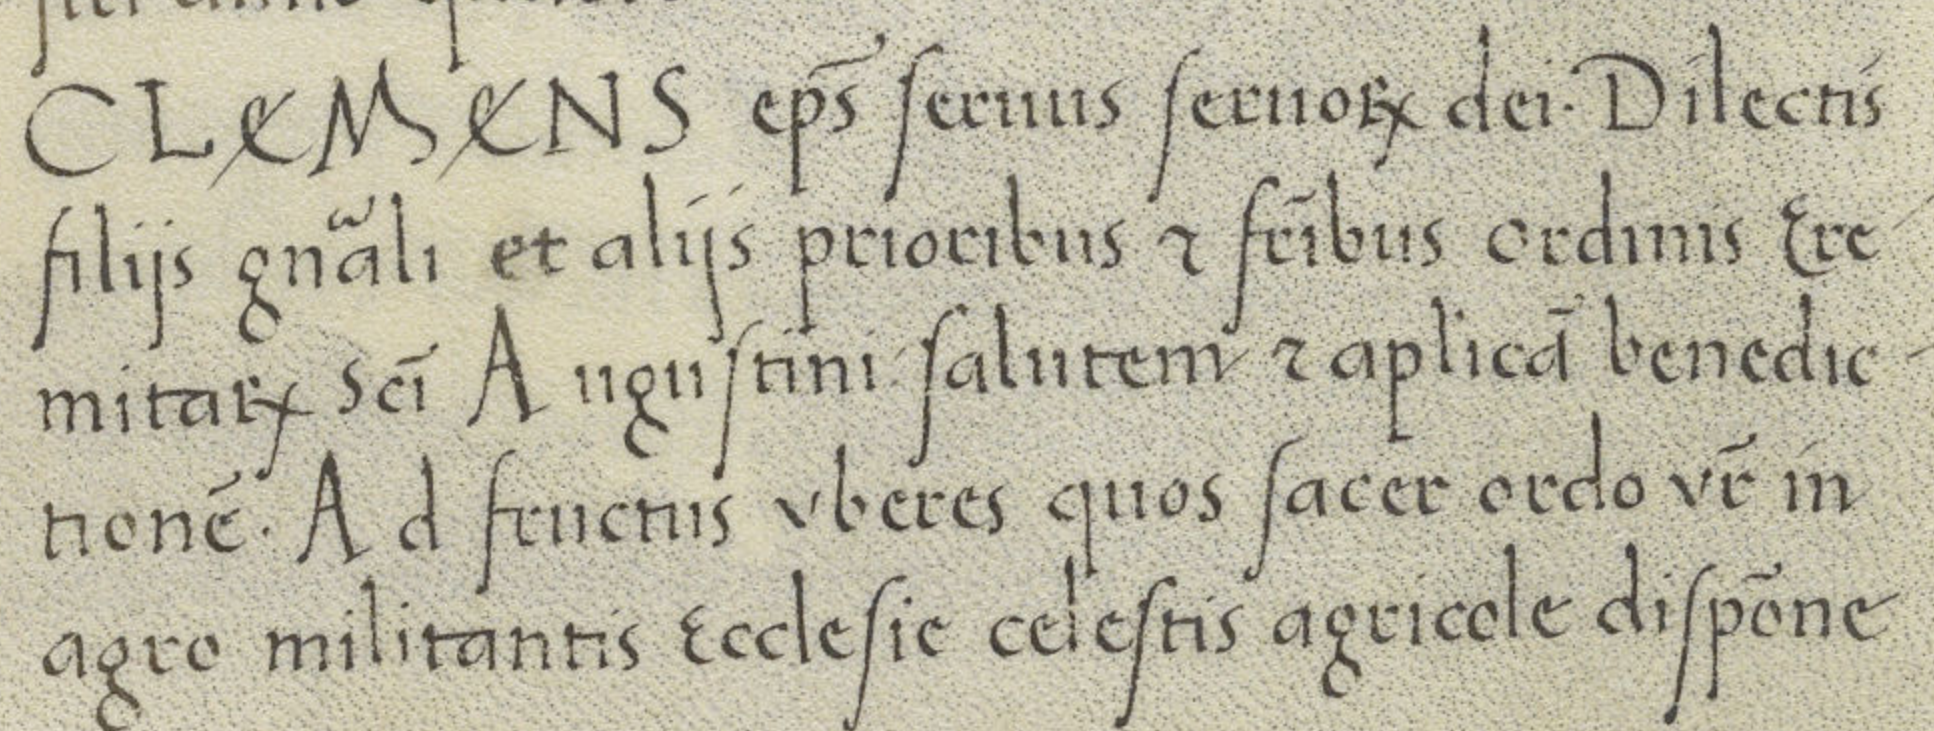 CLEMENS ep̄s ſeruus ſeruoꝝ dei· Dilectis
filijs gn̄ali et alijs prioribus ⁊ fr̄ibus ordinis Ere
mitaꝝ Sc̄i Auguſtini ſalutem ⁊ aplicā benedic-
tionē· Ad fructus vberes quos ſacer ordo vr̄ in
agro militantis Eccleſie celeſtis agricole diſpōne